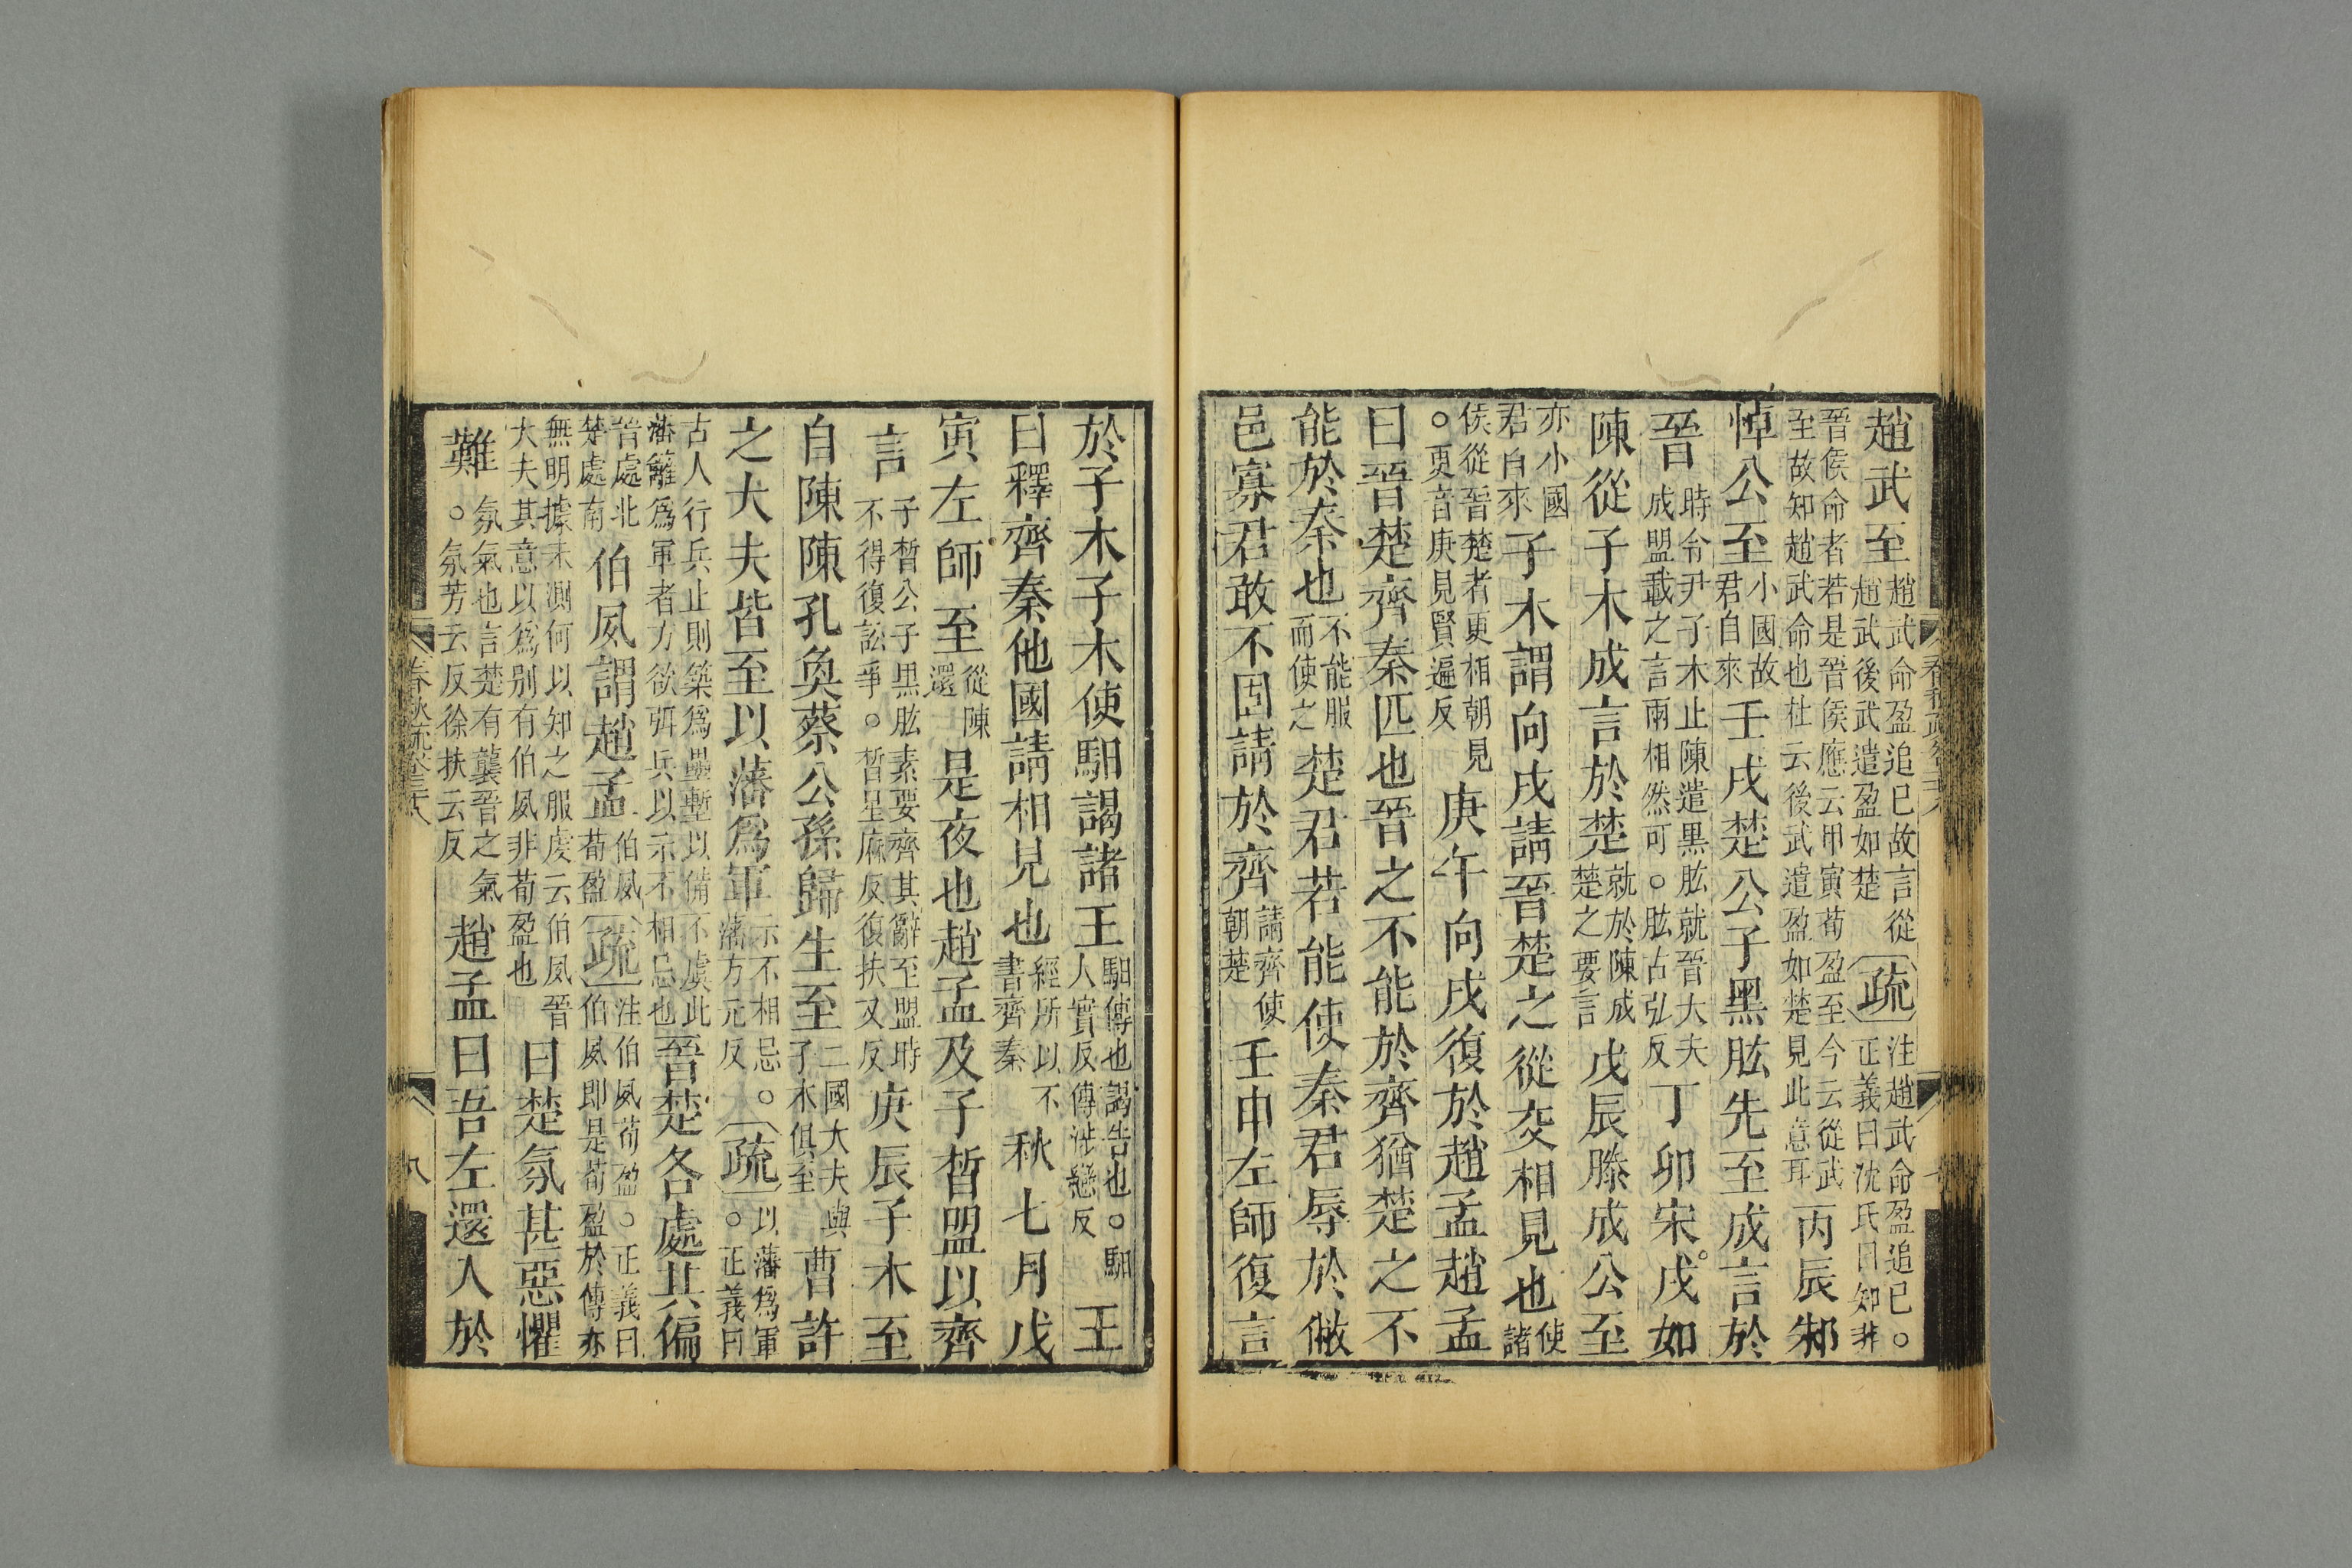 趙武至趙武命盈追已故言從趙武後武遣盈如楚疏注趙武命盈追已。正義曰沈氏曰知非
晉侯命者若是晉侯應云甲寅荀盈至今云從武至故知趙武命也杜云後武遣盈如楚見此意耳丙辰邾
悼公至小國故君自來壬戌楚公子黑肱先至成言於
晉時令尹子木止陳遣黑肱就晉大夫成盟載之言兩相然可。肱古弘反丁卯宋戌如
陳從子木成言於楚就於陳成楚之要言戊辰滕成公至
亦小國君自來子木謂向戌請晉楚之從交相見也使諸
侯從晉楚者更相朝見。更音庚見賢遍反庚午向戌復於趙孟趙孟
曰晉楚齊秦匹也晉之不能於齊猶楚之不
能於秦也不能服而使之楚君若能使秦君辱於敝
邑寡君敢不固請於齊請齊使朝楚壬申左師復言
於子木子木使馹謁諸王馹傳也謁告也。馹人實反傳涉戀反王
曰釋齊秦他國請相見也經所以不書齊秦秋七月戊
寅左師至從陳還是夜也趙孟及子皙盟以齊
言子皙公子黑肱素要齊其辭至盟時不得復訟爭。皙星麻反復扶又反庚辰子木至
自陳陳孔奐蔡公孫歸生至二國大夫與子木俱至曹許
之大夫皆至以藩爲軍示不相忌。藩方元反疏以藩爲軍。正義曰
古人行兵止則築爲壘塹以備不虞此藩籬爲軍者方欲弭兵以示不相忌也晉楚各處其偏
晉處北楚處南伯夙謂趙孟伯夙荀盈疏注伯夙荀盈。正義曰伯夙即是荀盈於傳亦
無明據未測何以知之服虔云伯夙晉大夫其意以爲別有伯夙非荀盈也曰楚氛甚惡懼
難氛氣也言楚有襲晉之氣。氛芳云反徐扶云反趙孟曰吾左還入於
春秋疏卷三十八
八